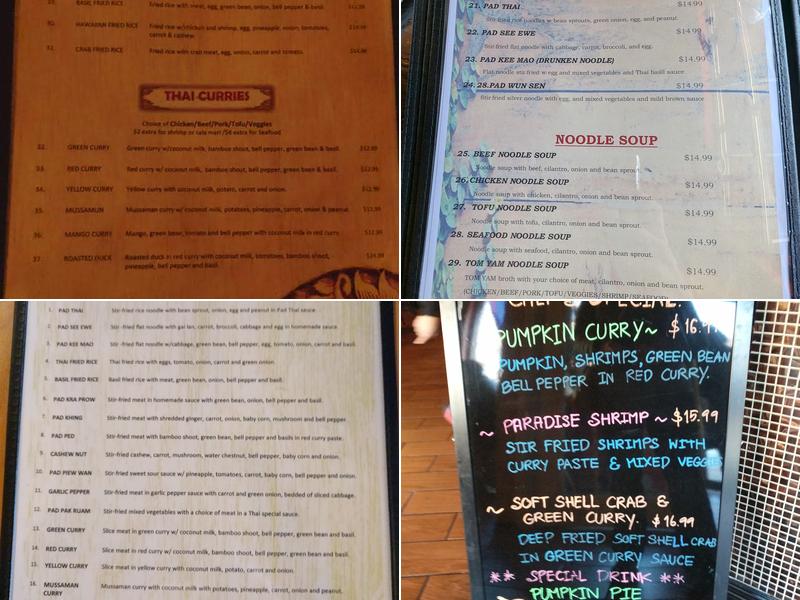 BASIL FRIED RICE Fried rice with meat, egg, green bean, onion, bell pepper & basil. $12.99
30. HAWAIIAN FRIED RICE Fried rice w/chicken and shrimp, egg, pineapple, onion, tomatoes,
carrot & cashew.
31. CRAB FRIED RICE Fried rice with crab meat, egg, onion, carrot and tomato. $14.99
THAI CURRIES
Choice of Chicken/Beef/Pork/Tofu/Veggies
$2 extra for shrimp or calamari /$6 extra for Seafood
32. GREEN CURRY Green curry w/coconut milk, bamboo shoot, bell pepper, green bean & basil. $12.99
33. RED CURRY Red curry w/ coconut milk, bamboo shoot, bell pepper, green bean & basil. $12.99
34. YELLOW CURRY Yellow curry with coconut milk, potato, carrot and onion. $12.99
35. MUSSAMUN Mussaman curry w/ coconut milk, potatoes, pineapple, carrot, onion & peanut. $12.99
36. MANGO CURRY Mango, green bean, tomato and bell pepper with coconut milk in red curry. $12.99
37. ROASTED DUCK Roasted duck in red curry with coconut milk, tomatoes, bamboo shoot, $14.99
pineapple, bell pepper and basil.
21. PAD THAI $14.99
Stir fried rice noodles w bean sprouts, green onion, egg, and peanut.
22. PAD SEE EWE $14.99
Stir-fried flat noodle with cabbage, carrot, broccoli, and egg.
23. PAD KEE MAO (DRUNKEN NOODLE) $14.99
Flat noodle stir fried w egg and mixed vegetables and Thai basil sauce
24. 28.PAD WUN SEN $14.99
Stir fried silver noodle with egg, and mixed vegetables and mild brown sauce
NOODLE SOUP
25. BEEF NOODLE SOUP $14.99
Noodle soup with beef, cilantro, onion and bean sprout.
26.CHICKEN NOODLE SOUP $14.99
Noodle soup with chicken, cilantro, onion and bean sprout.
27. TOFU NOODLE SOUP $14.99
Noodle soup with tofu, cilantro, onion and bean sprout.
28. SEAFOOD NOODLE SOUP $14.99
Noodle soup with seafood, cilantro, onion and bean sprout.
29. TOM YAM NOODLE SOUP $14.99
TOM YAM broth with your choice of meat, cilantro, onion and bean sprout.
(CHICKEN/BEEF/PORK/TOFU/VEGGIES/SHRIMP/SEAFOOD)
1. PAD THAI Stir-fried rice noodle with bean sprout, onion, egg and peanut in Pad Thai sauce.
2. PAD SEE EWE Stir-fried flat noodle with gai lan, carrot, broccoli, cabbage and egg in homemade sauce.
3. PAD KEE MAO Stir -fried flat noodle w/cabbage, green bean, bell pepper, egg, tomato, onion, carrot and basil.
4. THAI FRIED RICE Thai fried rice with eggs, tomato, onion, carrot and green onion.
5. BASIL FRIED RICE Basil fried rice with meat, green bean, onion, bell pepper and basil.
6. PAD KRA PROW Stir-fried meat in homemade sauce with green bean, onion, bell pepper and basil.
7. PAD KHING Stir-fried meat with shredded ginger, carrot, onion, baby corn, mushroom and bell pepper.
8. PAD PED Stir-fried meat with bamboo shoot, green bean, bell pepper and basils in red curry paste.
9. CASHEW NUT Stir-fried cashew, carrot, mushroom, water chestnut, bell pepper, baby corn and onion.
10. PAD PIEW WAN Stir-fried sweet sour sauce w/ pineapple, tomatoes, carrot, baby corn, bell pepper and onion.
11. GARLIC PEPPER Stir-fried meat in garlic pepper sauce with carrot and green onion, bedded of sliced cabbage.
12. PAD PAK RUAM Stir-fried mixed vegetables with a choice of meat in a Thai special sauce.
13. GREEN CURRY Slice meat in green curry w/ coconut milk, bamboo shoot, bell pepper, green bean and basil.
14. RED CURRY Slice meat in red curry w/ coconut milk, bamboo shoot, bell pepper, green bean and basil.
15. YELLOW CURRY Slice meat in yellow curry with coconut milk, potato, carrot and onion.
16. MUSSAMAN Mussaman curry with coconut milk with potatoes, pineapple, carrot, onion and peanut.
CURRY
CHEF'S SPECIAL.
PUMPKIN CURRY~ $16.99
PUMPKIN, SHRIMPS, GREEN BEAN
BELL PEPPER IN RED CURRY.
~ PARADISE SHRIMP ~ $15.99
STIR FRIED SHRIMPS WITH
CURRY PASTE & MIXED VEGGIES
~ SOFT SHELL CRAB &
GREEN CURRY. $16.99
DEEP FRIED SOFT SHELL CRAB
IN GREEN CURRY SAUCE
** SPECIAL DRINK **
PUMPKIN PIE